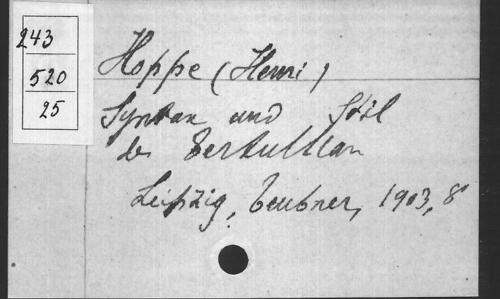 243
520
25
Hoppe (Henri)
Syntax und Stil
des Tertullian
Leipzig, Teubner, 1903, 8°